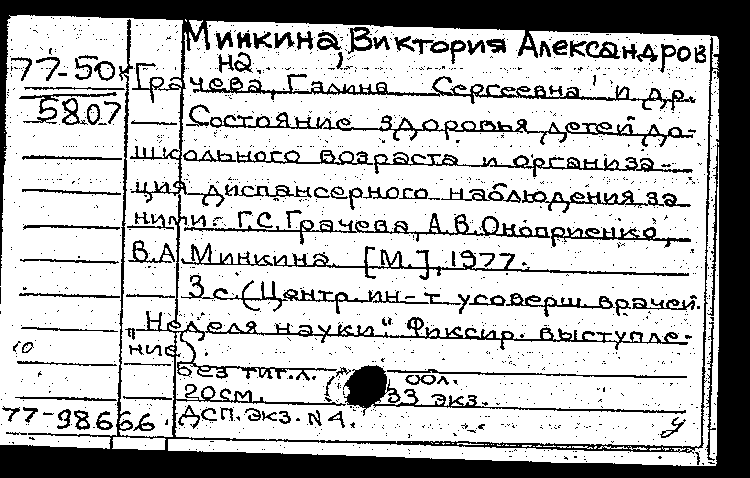 Минкина, Виктория Александров
на
77-50к Грачева, Галина Сергеевна и др.
5807 Состояние здоровья детей до-
школьного возраста и организа-
ция диспансерного наблюдения за
ними. Г.С. Грачева, А.В. Оноприенко,
В.А. Минкина. [М.], 1977.
3 с. (Центр. ин-т усоверш. врачей.
"Неделя науки". Фиксир. выступле-
10 ние).
Без тит.л. обл.
20см. 33 экз.
77-98666. ДСП. экз. N 4. У